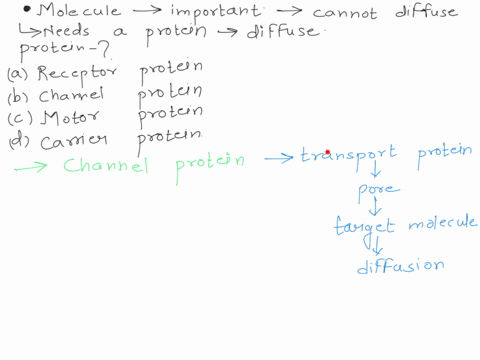 • Molecule → important → cannot diffuse
↳ Needs a protein → diffuse
protein-?
(a) Receptor protein
(b) Channel protein
(c) Motor protein
(d) Carrier protein
→ Channel protein → transport protein
↓
pore
↓
target molecule
↓
diffusion